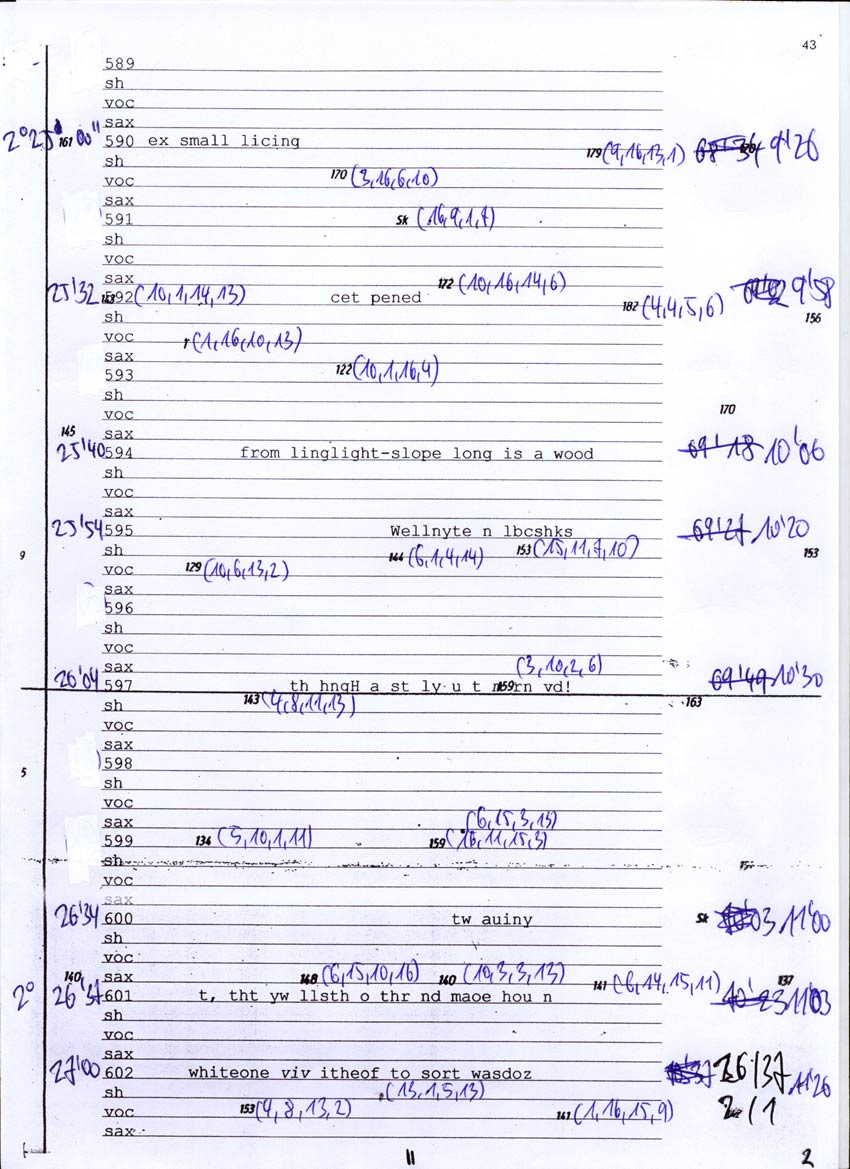 43
589
sh
voc
sax
2°25'00" 161 590 ex small licing 179 (9,16,13,1) 9'26
sh
voc 170 (3,16,6,10)
sax
591 Sk (16,9,1,7)
sh
voc
sax 172 (10,16,14,6)
25'32 592 (10,1,14,13) cet pened 182 (4,4,5,6) 9'58
sh 156
voc r (1,16,10,13)
sax
593 122 (10,1,16,4)
sh
voc 170
145 sax
25'40 594 from linglight-slope long is a wood 69'18 10'06
sh
voc
sax
25'54 595 Wellnyte n lbcshks 69'27 10'20
9 sh 144 (6,1,4,14) 153 (15,11,7,10) 153
voc 129 (10,6,13,2)
sax
596
sh
voc
sax (3,10,2,6)
26'04 597 th hngH a st ly u t 159 rn vd! 69'49 10'30
sh 143 (4,8,11,13) 163
voc
sax
598
5 sh
voc
sax (6,15,3,13)
599 134 (5,10,1,11) 159 (16,11,15,3)
sh
voc
sax
26'34 600 tw auiny Sk 03 11'00
sh
voc
140 sax 148 (6,15,10,16) 140 (10,3,3,13) 141 (6,14,15,11) 137
2° 26'37 601 t, tht yw llsth o thr nd maoe hou n 11'03
sh
voc
sax
27'00 602 whiteone viv itheof to sort wasdoz 37 26'/37 11'26
sh (13,1,5,13)
voc 153 (4,8,13,2) 141 (1,16,15,9) 2/1
sax
11 2